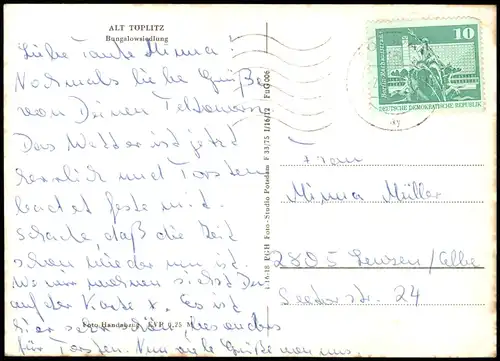 ALT TÖPLITZ
Bungalowsiedlung
Liebe Tante Minna!
Nochmals liebe Grüße
von Deinen
Das Wetter ist jetzt
herrlich und Torsten
badet feste mit.
Schade, daß die Zeit
schon wieder um ist.
Wo wir wohnen siehst Du
auf der Karte x. Es ist
hier sehr schön besonders
für Torsten. Nun viele Grüße von uns
Foto-Handabzug EVP 0,25 M
I. 16-18 PGH Foto-Studio Potsdam F 33/75 I/16/12 FuG 06
10
DEUTSCHE DEMOKRATISCHE REPUBLIK
Frau
Minna Müller
2805 Lenzen/Elbe
Seetorstr. 24